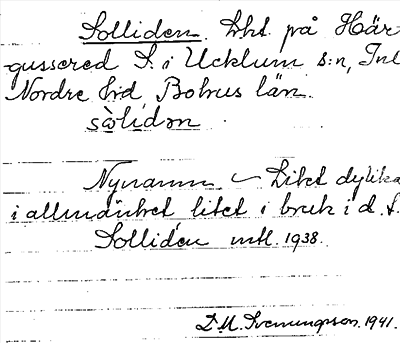 Solliden. Lht. på Här-
gussered S. i Ucklum s:n, Inl.
Nordre hrd Bohus län.
sòlidən
Nynamn – Likt dylika
i allmänhet litet i bruk i d. t.
Solliden mtl. 1938.
D. M. Svenungsson. 1941.